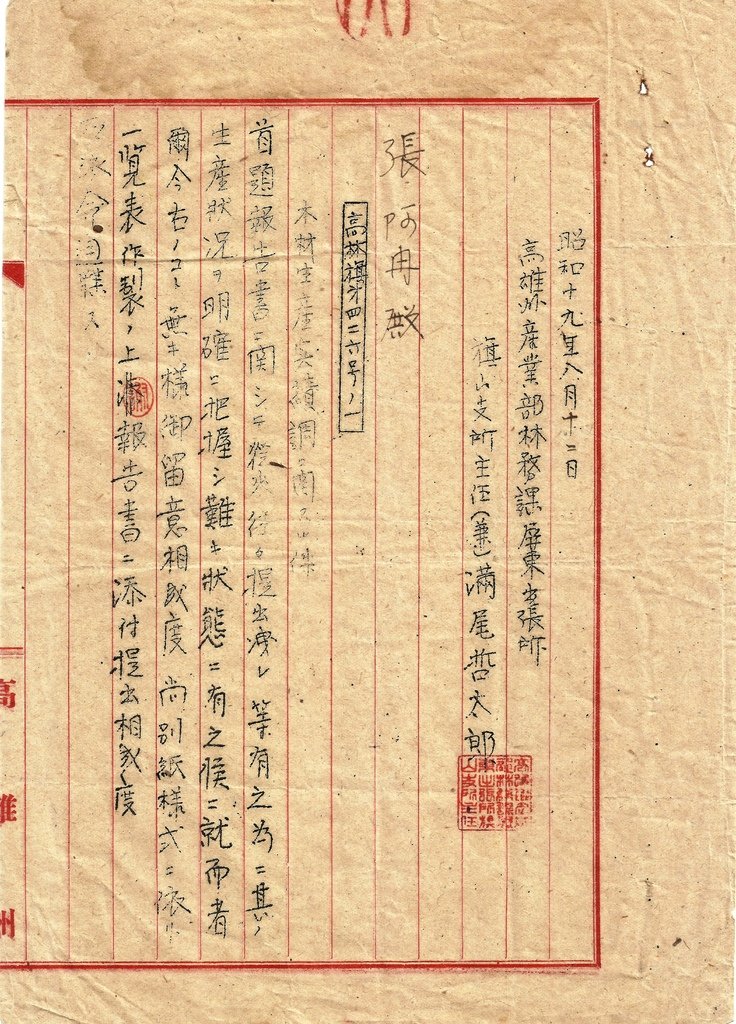 昭和十九年八月十二日
高雄州産業部林務課屏東出張所
旗山支所主任(兼)満尾哲太郎
張阿冉殿
高林旗第四二六号ノ一
木材生産実績調ニ関スル件
首題報告書ニ関シテ 提出洩レ等有之為ニ其ノ
生産状況ヲ明確ニ把握シ難キ状態ニ有之候ニ就而者
爾今右ノコト無キ様御留意相成度尚別紙様式ニ依リ
一覧表作製ノ上 報告書ニ添付提出相成度
右 命通牒ス
高雄州